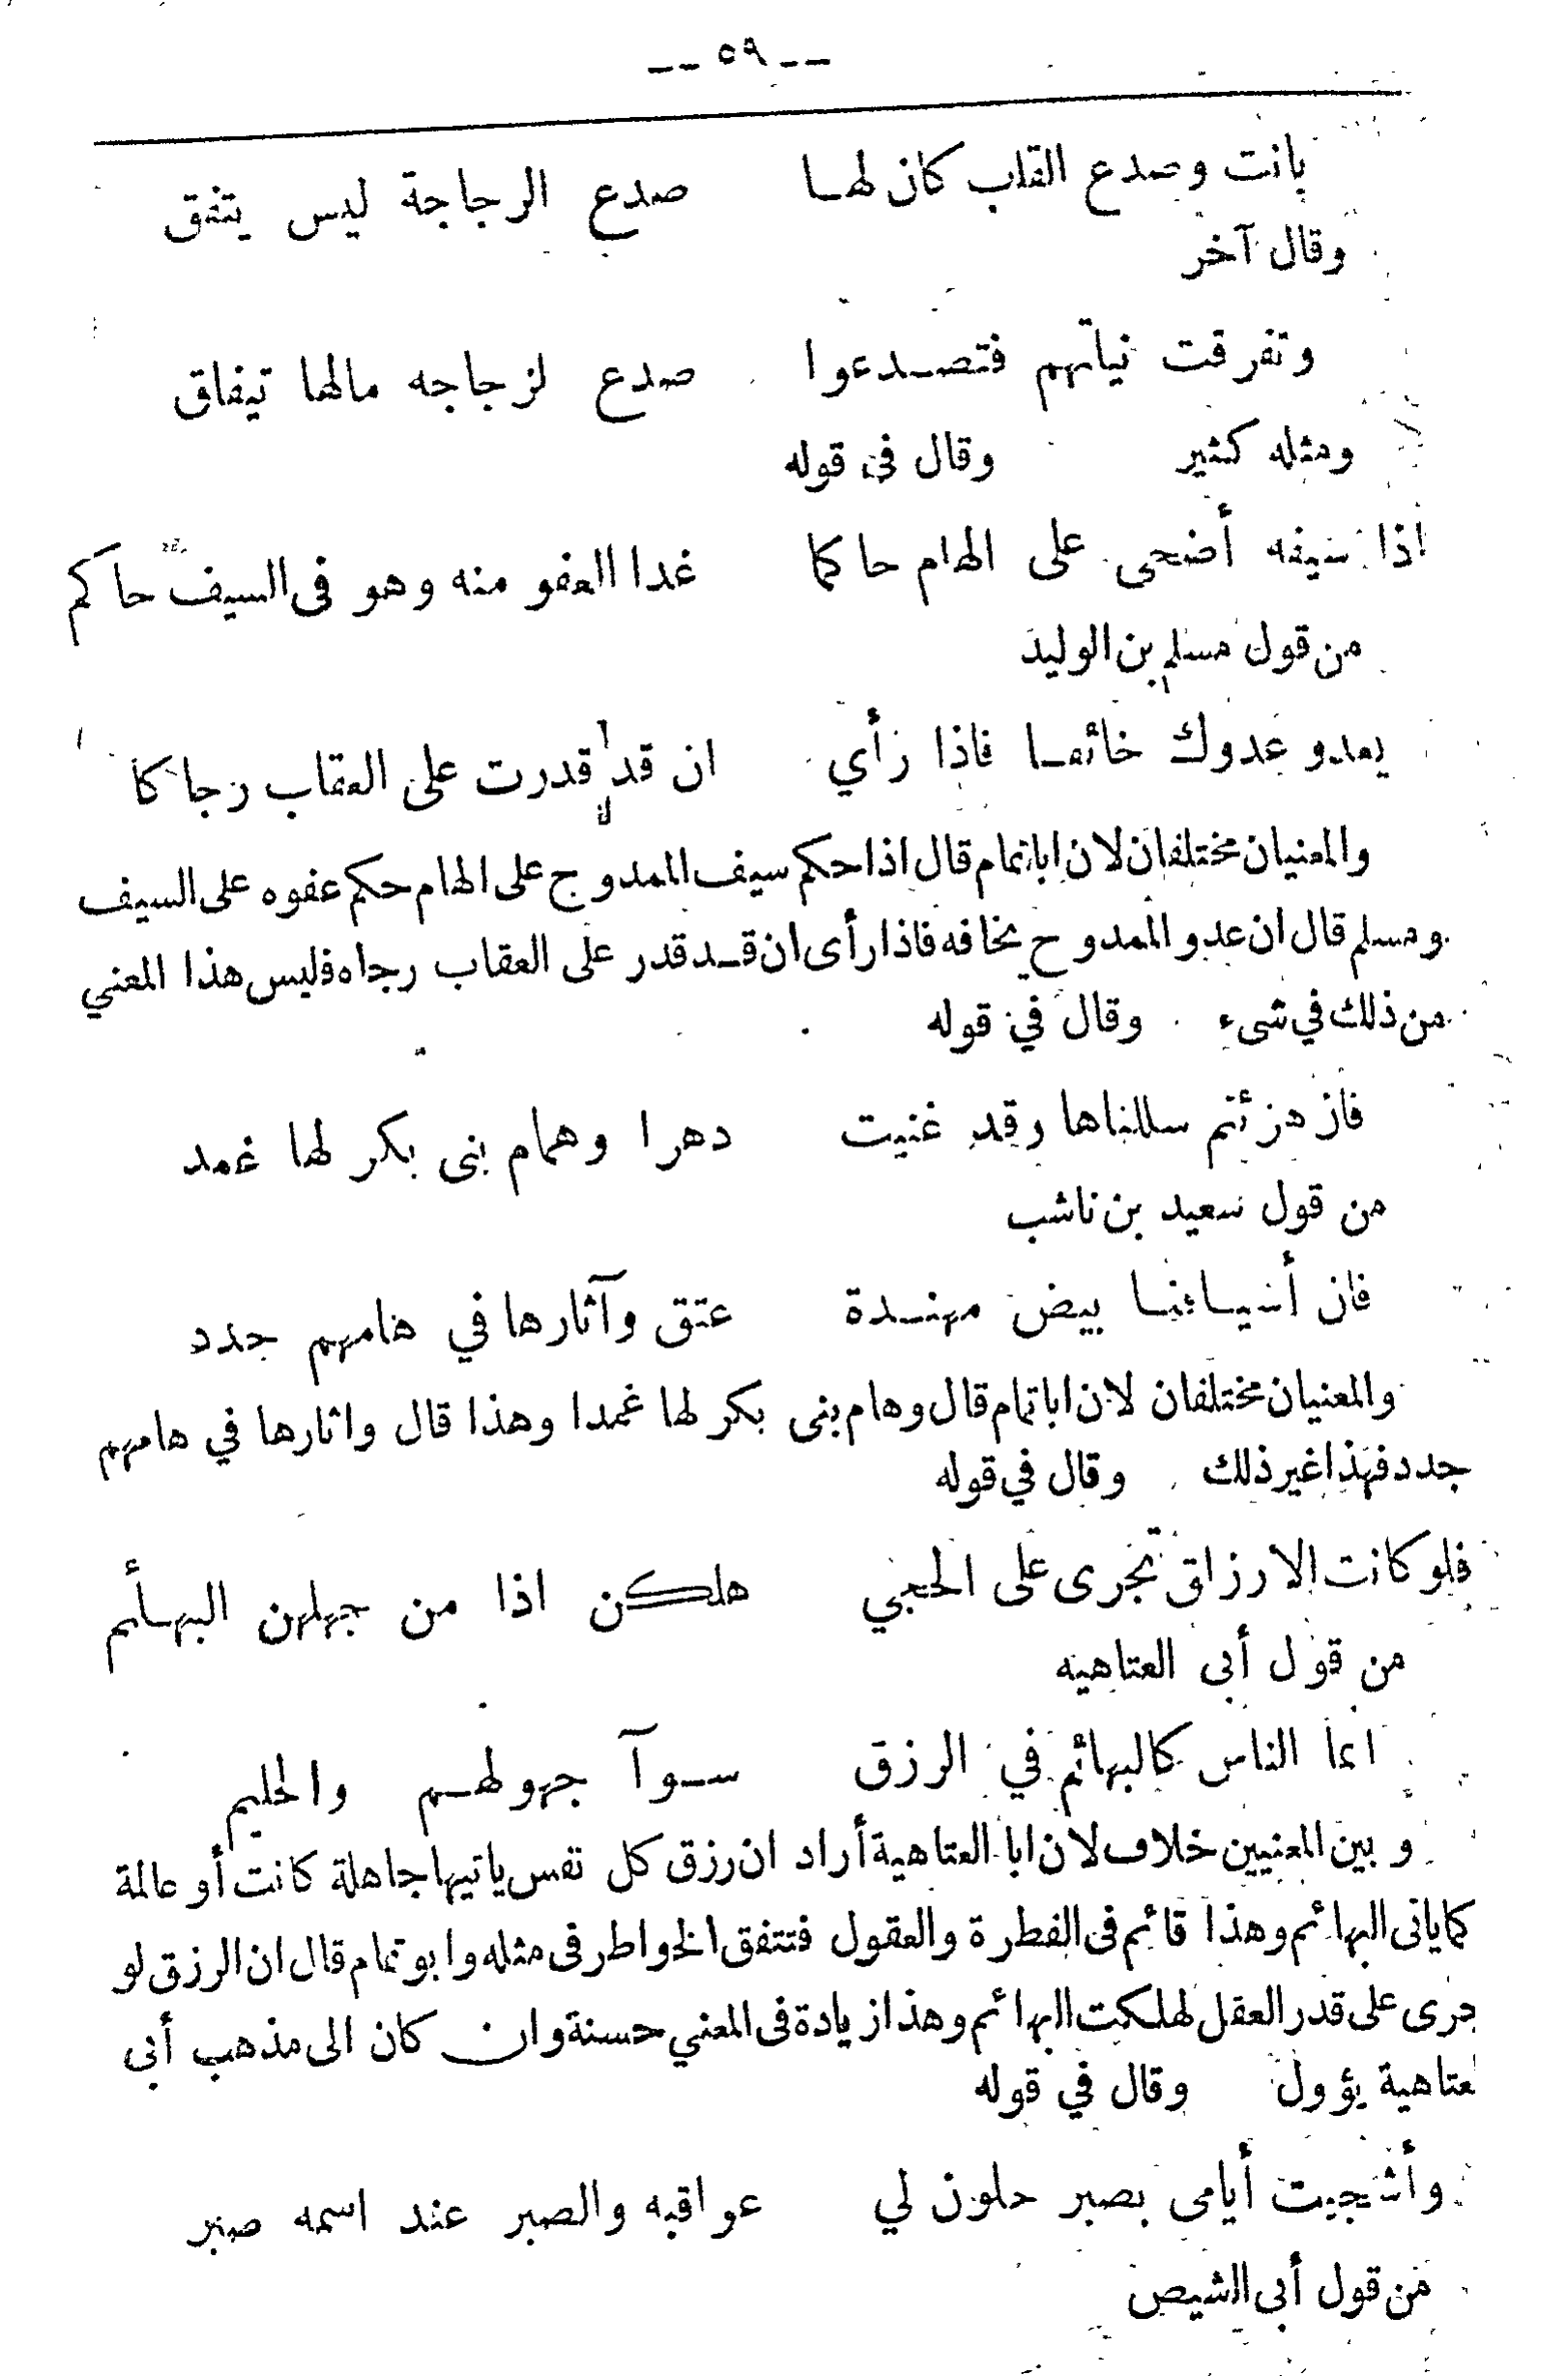 -- ٥٩ --
بانت وصدع القلب كان لهــا صدع الزجاجة ليس يتفق
وقال آخر
وتفرقت نياتهم فتصــدعوا صدع لزجاجه مالها تيفاق
ومثله كثير وقال في قوله
اذا سيفه أضحى على الهام حاكما غدا العفو منه وهو فى السيف حاكم
من قول مسلم بن الوليد
يعدو عدوك خائفــا فاذا رأي ان قد قدرت على العقاب رجاكا
والمعنيان مختلفان لان اباتمام قال اذا حكم سيف الممدوح على الهام حكم عفوه على السيف
ومسلم قال ان عدو الممدوح يخافه فاذا رأى ان قــد قدر على العقاب رجاه فليس هذا المعني
من ذلك في شىء وقال في قوله
فان هزئتم سللناها وقد غنيت دهرا وهمام بنى بكر لها غمد
من قول سعيد بن ناشب
فان أسيــافنــا بيض مهنــدة عتق وآثارها في هامهم جدد
والمعنيان مختلفان لان اباتمام قال وهام بنى بكر لها غمدا وهذا قال واثارها في هامهم
جدد فهذا غير ذلك وقال في قوله
فلو كانت الارزاق تجرى على الحجي هلكن اذا من جهلهن البهــأم
من قول أبى العتاهيه
انما الناس كالبهائم في الرزق ســوآ جهولهــم والحليم
وبين المعنيين خلاف لان ابا العتاهية أراد ان رزق كل نفس ياتيها جاهلة كانت أو عالمة
كما ياتى البهائم وهذا قائم فى الفطرة والعقول فتتفق الخواطر فى مثله وابو تمام قال ان الرزق لو
جرى على قدر العقل لهلكت البهائم وهذا زيادة فى المعني حسنة وان كان الى مذهب أبى
لعتاهية يؤول وقال في قوله
وأشجيت أيامى بصبر حلون لي عواقبه والصبر عند اسمه صبر
من قول أبى الشيص